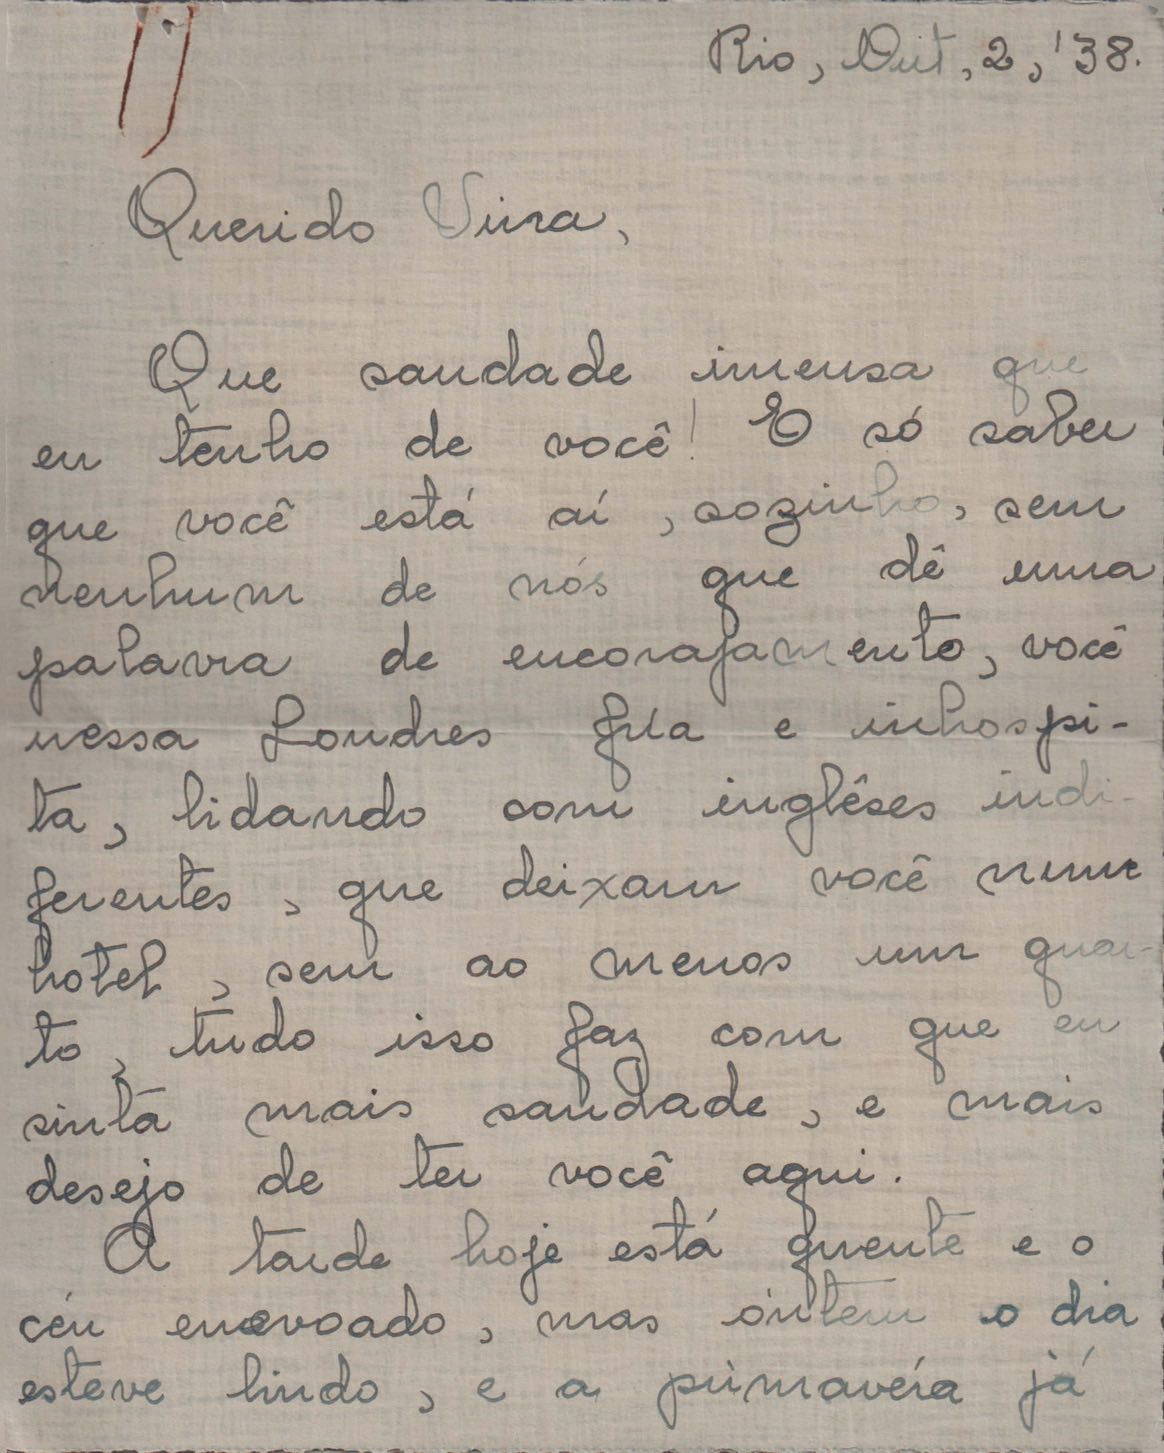 Rio, Out, 2, '38.
Querido Vira,
Que saudade imensa que
eu tenho de você! E só saber
que você está aí, sozinho, sem
nenhum de nós que dê uma
palavra de encorajamento, você
nessa Londres fria e inhospi-
ta, lidando com inglêses indi-
ferentes, que deixam você num
hotel, sem ao menos um quar-
to, tudo isso faz com que eu
sinta mais saudade, e mais
desejo de ter você aqui.
A tarde hoje está quente e o
céu enevoado, mas óntem o dia
esteve lindo, e a primavera já